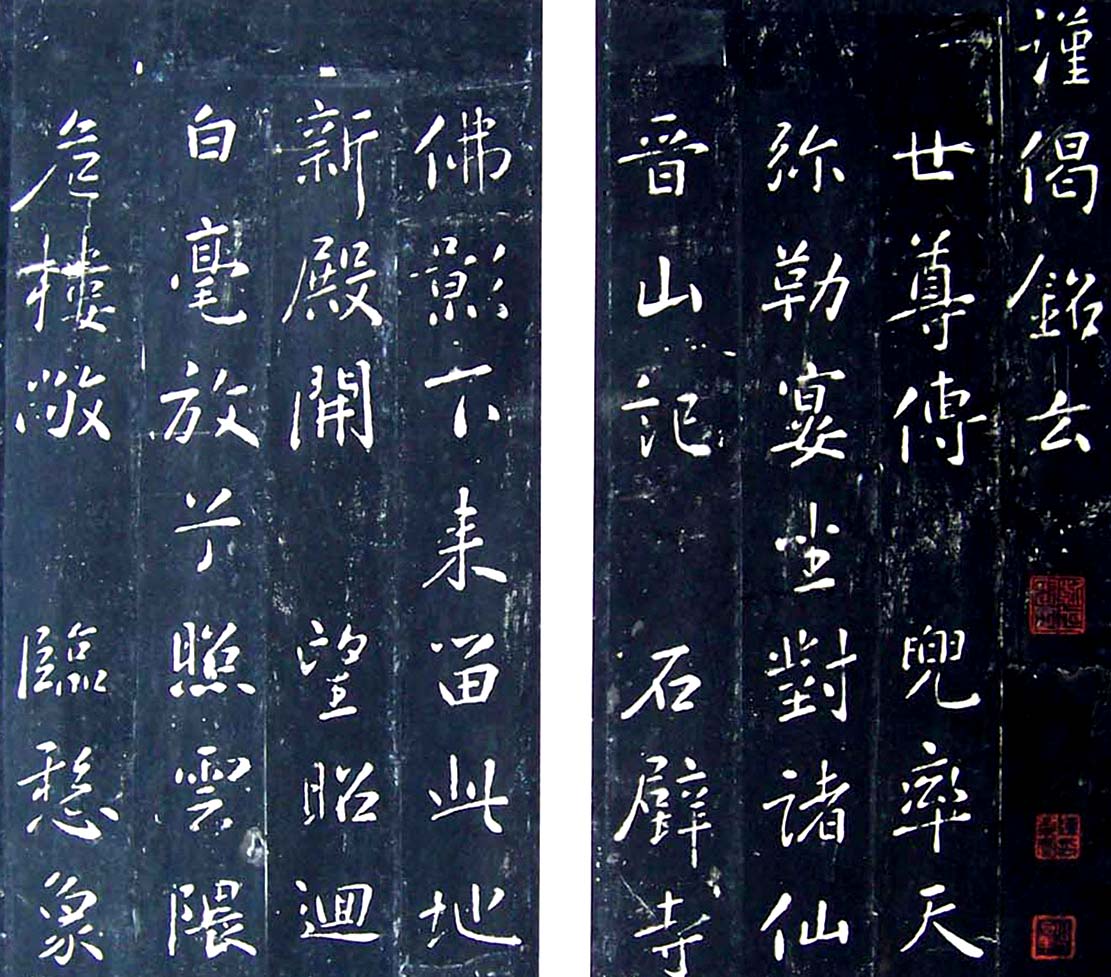 謹偈銘云
世尊傳 兜率天
弥勒宴坐對諸仙
晋山記 石壁寺
佛影下来留此地
新殿開 望昭迴
白毫放兮照雲隈
危樓敞 臨象